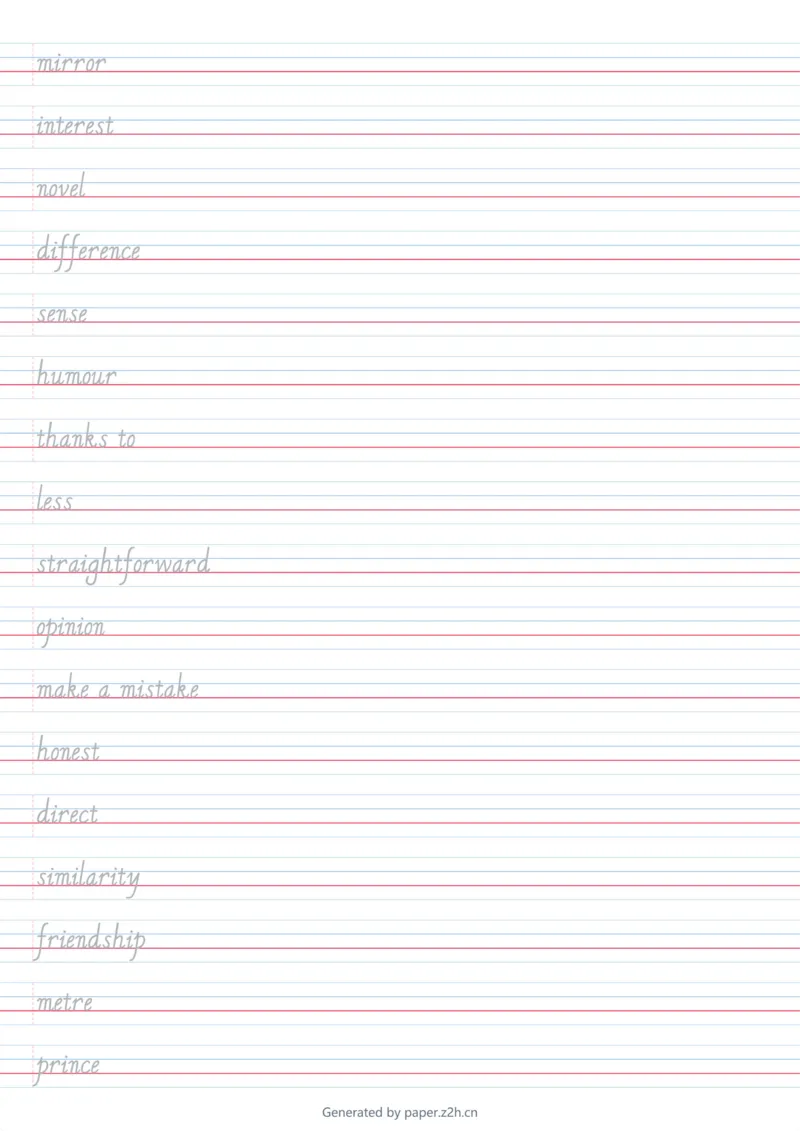 mirror
interest
novel
difference
sense
humour
thanks to
less
straightforward
opinion
make a mistake
honest
direct
similarity
friendship
metre
prince
Generated by paper.z2h.cn